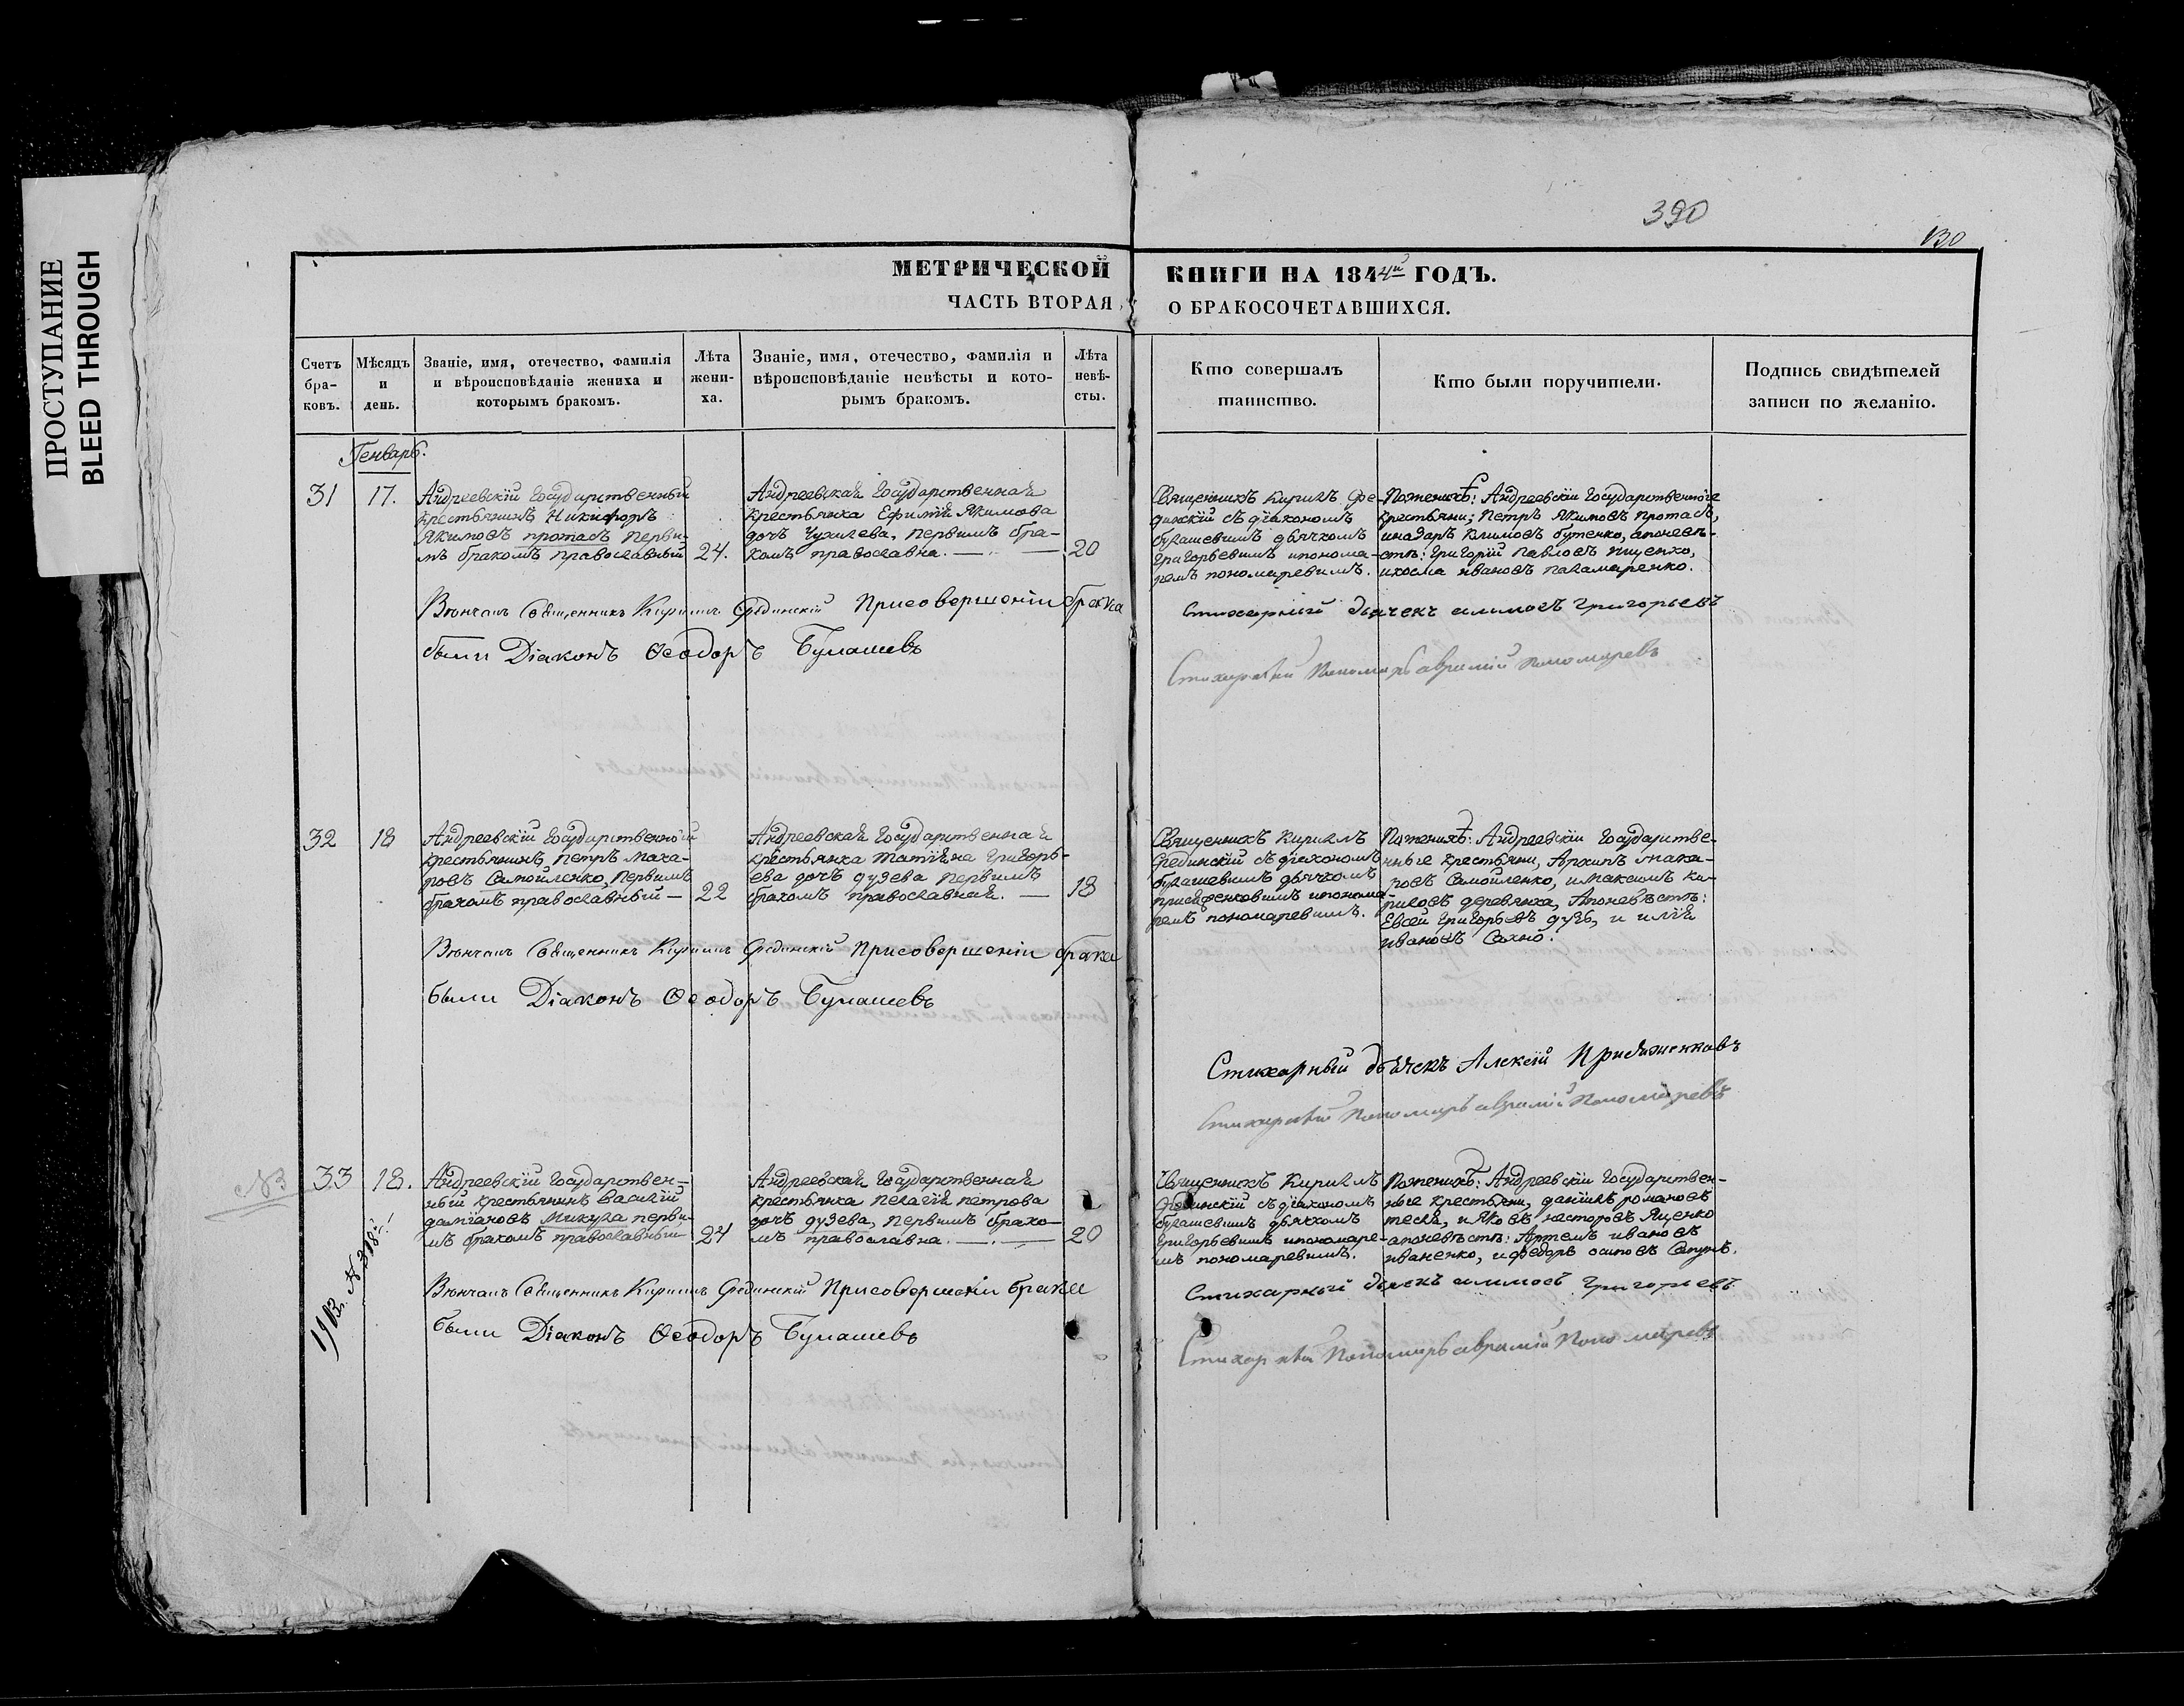 ПРОСТУПАНИЕ
BLEED THROUGH
390
130
МЕТРИЧЕСКОЙ
КНИГИ НА 1844й ГОДЪ.
ЧАСТЬ ВТОРАЯ,
О БРАКОСОЧЕТАВШИХСЯ.
Счетъ бра- ковъ.
Мѣсяцъ и день.
Званіе, имя, отечество, фамилія и вѣроисповѣданіе жениха и которымъ бракомъ.
Лѣта жени- ха.
Званіе, имя, отечество, фамилія и вѣроисповѣданіе невѣсты и кото- рымъ бракомъ.
Лѣта невѣ- сты.
Кто совершалъ таинство.
Кто были поручители.
Подпись свидѣтелей записи по желанію.
Генварь.
31
17.
Андреевскій Государственный
крестьянинъ Никифоръ
Якимовъ протасъ перви-
мъ бракомъ православный
24.
Андреевская Государственная
крестьянка Ефимія Якимова
дочь Чухлева, первымъ бра-
комъ православна.
20
Священникъ Кирилъ Фе-
динскій съ діакономъ
булашевимъ дьячкомъ
григорьевимъ ипонома-
ремъ пономаревимъ.
Поженихѣ: Андреевскіи Государственніе
крестьяни; Петръ Якимовъ протасъ,
иназаръ Климовъ бутенко, апоневѣ-
стѣ: григорій павловъ ищенко,
икосма ивановъ паламаренко.
Вѣнчалъ Священникъ Кирилъ Фединскій Присовершеніи брака
были Діаконъ Ѳеодоръ Булашевъ
Стихарный дьячекъ Григорьевъ
Стихарный Пономарь аврамій Пономаревъ
32
18
Андреевскій Государственній
крестьянинъ, петръ мака-
ровъ Самойленко, первымъ
бракомъ православный —
22
Андреевская Государственная
крестьянка татіяна григорь-
ева дочь дузева первимъ
бракомъ православная. —
18
Священникъ Кирилъ
Фединскій съ діакономъ
булашевимъ дьячкомъ
ипонома-
ремъ пономаревимъ.
Поженихѣ: Андреевскіи Государстве-
нные крестьяни, Архипъ мака-
ровъ Самойленко, имаксимъ ки-
риловъ деревянка, Апоневѣстѣ:
Евсей григорьевъ дузь, и илія
ивановъ Сахно.
Вѣнчалъ Священникъ Кирилъ Фединскій Присовершеніи брака
были Діаконъ Ѳеодоръ Булашевъ
Стихарный дьячекъ Алексій
Стихарный Пономарь аврамій Пономаревъ
NB
33
18.
Андреевскій Государствен-
ный крестьянинъ василій
даміановъ микула перви-
мъ бракомъ православный
24
Андреевская Государственная
крестьянка пелагія петрова
дочь дузева, первимъ брако-
мъ православна.
20
Священникъ Кирилъ
Фединскій съ діакономъ
булашевимъ дьячкомъ
григорьевимъ ипономаре-
мъ пономаревимъ.
Поженихѣ: Андреевскіи Государствен-
ные крестьяни, даніилъ романовъ
и Яковъ несторовъ Яценко
апоневѣстѣ: Артемъ ивановъ
иваненко, и федоръ осиповъ
Вѣнчалъ Священникъ Кирилъ Фединскій Присовершеніи брака
были Діаконъ Ѳеодоръ Булашевъ
Стихарный дьячекъ Григорьевъ
Стихарный Пономарь аврамій Пономаревъ